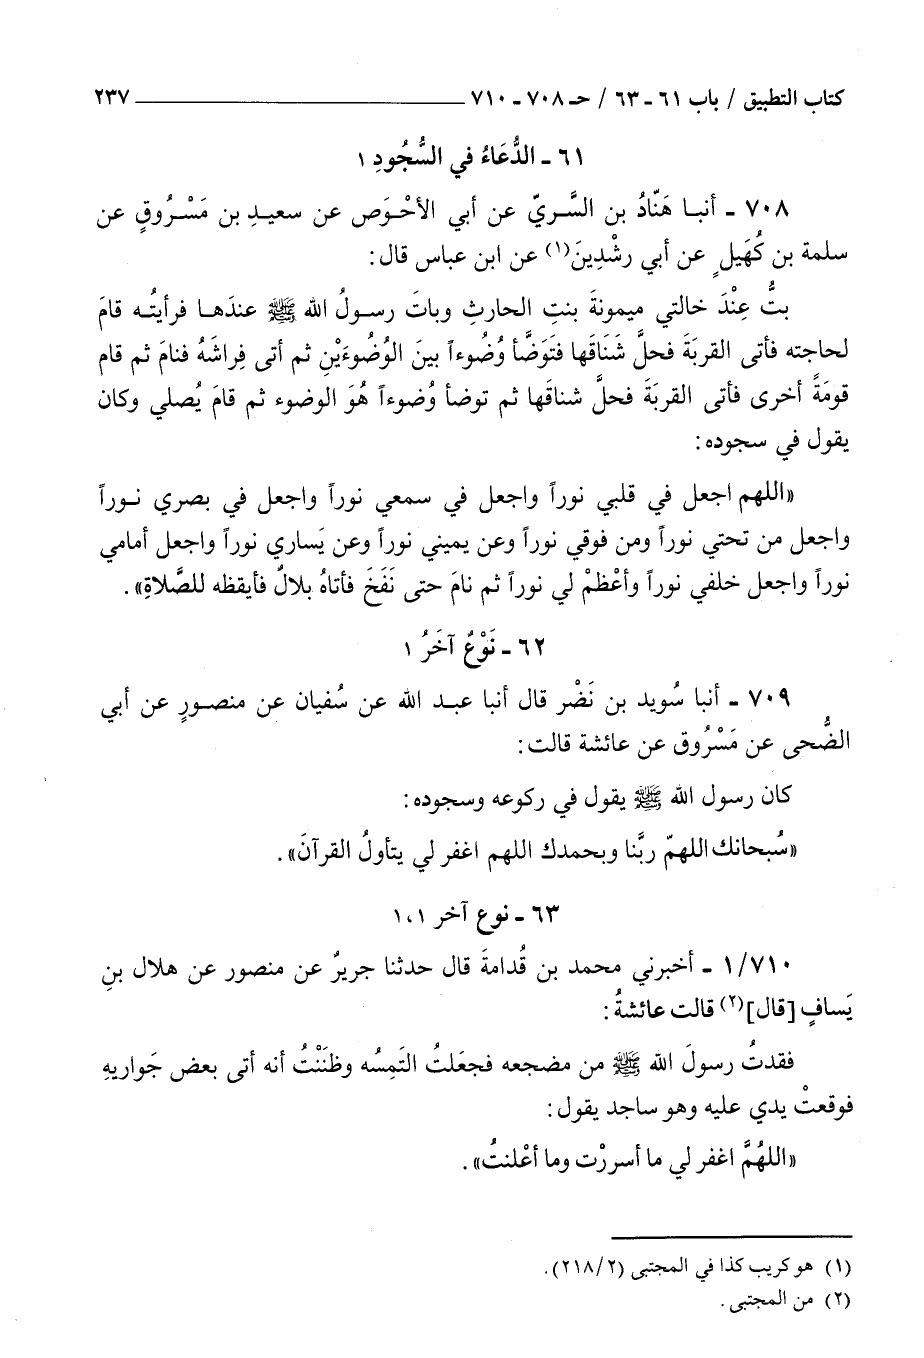 كتاب التطبيق / باب ٦١ - ٦٣ / حـ ٧٠٨ - ٧١٠ ــــــــــــــــــــــــ ٢٣٧
٦١ - الدُّعَاءُ في السُّجُودِ ١
٧٠٨ - أنبـا هَنَّادُ بن السَّـريّ عن أبي الأحْـوَص عن سعيـدِ بن مَسْـرُوقٍ عن
سلمة بن كُهَيلٍ عن أبي رِشْدِينَ(١) عن ابن عباس قال:
بتُّ عِنْدَ خالتي ميمونةَ بنتِ الحارثِ وباتَ رسـولُ الله ﷺ عندَهـا فرأيتُـه قامَ
لحاجته فأتى القربَةَ فحلَّ شَنَاقَها فتَوَضَّأ وُضُوءاً بينَ الوُضُوءَيْنِ ثم أتى فِراشَهُ فنامَ ثم قام
قومَةً أخرى فأتى القربَةَ فحلَّ شناقَها ثم توضأ وُضُوءاً هُوَ الوضوء ثم قامَ يُصلي وكان
يقول في سجوده:
«اللهم اجعل في قلبي نوراً واجعل في سمعي نوراً واجعل في بصري نـوراً
واجعل من تحتي نوراً ومن فوقي نوراً وعن يميني نوراً وعن يَساري نوراً واجعل أمامي
نوراً واجعل خلفي نوراً وأعْظمْ لي نوراً ثم نامَ حتى نَفَخَ فأتاهُ بلالٌ فأيقظه للصَّلاةِ».
٦٢ - نَوْعٌ آخَرُ ١
٧٠٩ - أنبا سُويد بن نَضْر قال أنبا عبـد الله عن سُفيان عن منصـورٍ عن أبي
الضُّحى عن مَسْرُوق عن عائشة قالت:
كان رسول الله ﷺ يقول في ركوعه وسجوده:
«سُبحانك اللهمّ ربَّنا وبحمدك اللهم اغفر لي يتأولُ القرآنَ».
٦٣ - نوع آخر ١،١
١/٧١٠ - أخبرني محمد بن قُدامةَ قال حدثنا جريرٌ عن منصور عن هلال بنِ
يَسافٍ [قال](٢) قالت عائشةُ:
فقدتُ رسولَ الله ﷺ من مضجعه فجعَلتُ التَمِسُه وظنَنْتُ أنه أتى بعض جَواريهِ
فوقعتْ يدي عليه وهو ساجد يقول:
«اللهُمَّ اغفر لي ما أسررْت وما أعْلنتُ».
(١) هو كريب كذا في المجتبى (٢١٨/٢).
(٢) من المجتبى.